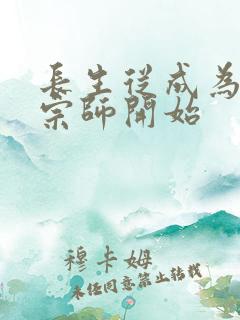 長生從成為
宗師開始
穆卡姆
未經同意禁止轉載